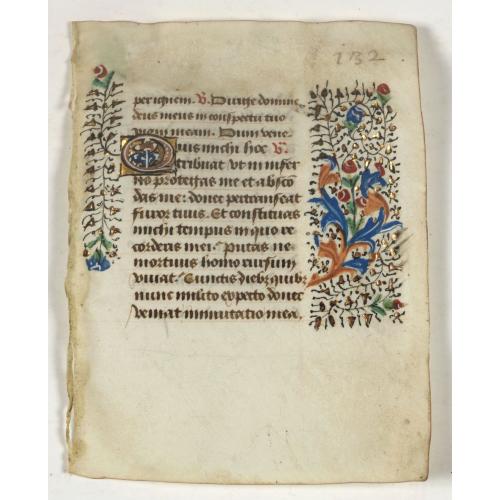 132
per ignem. V. Dirige domine
deus meus in conspectu tuo
viam meam. Dum vene
Quis michi hoc V.
tribuat ut in infer
no protegas me et absco
das me: donec pertranseat
furor tuus. Et constituas
michi tempus in quo re
corderis mei. putas ne
mortuus homo rursum
vivat. Cunctis diebus quibus
nunc milito expecto donec
veniat inmutatio mea.